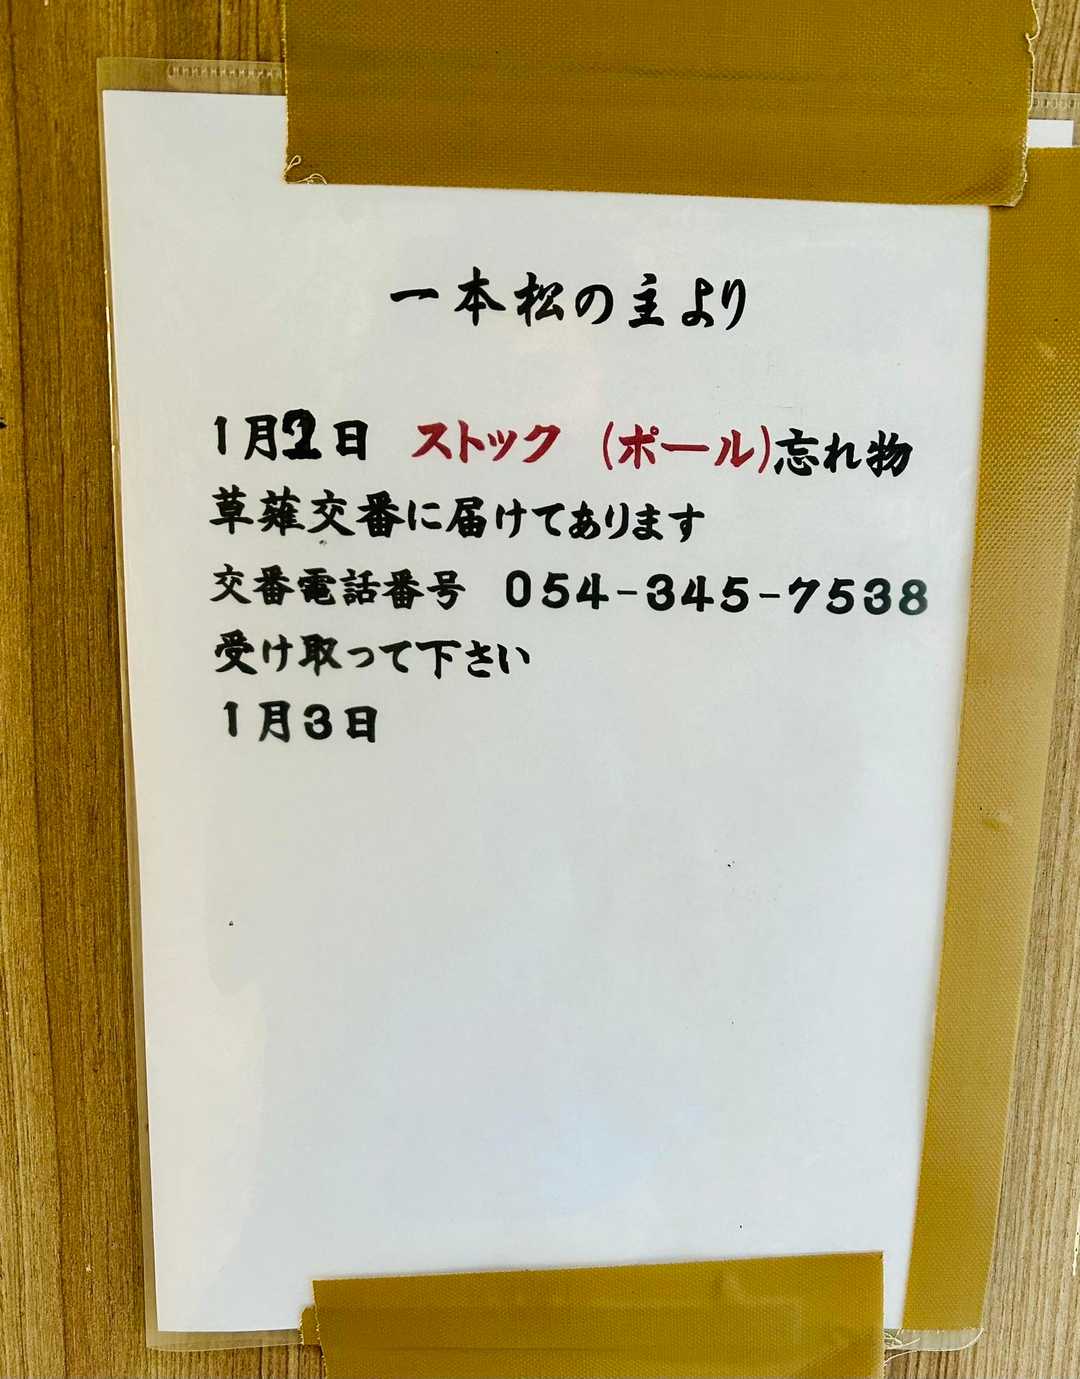 一本松の主より
1月2日 ストック (ポール)忘れ物
草薙交番に届けてあります
交番電話番号 054-345-7538
受け取って下さい
1月3日